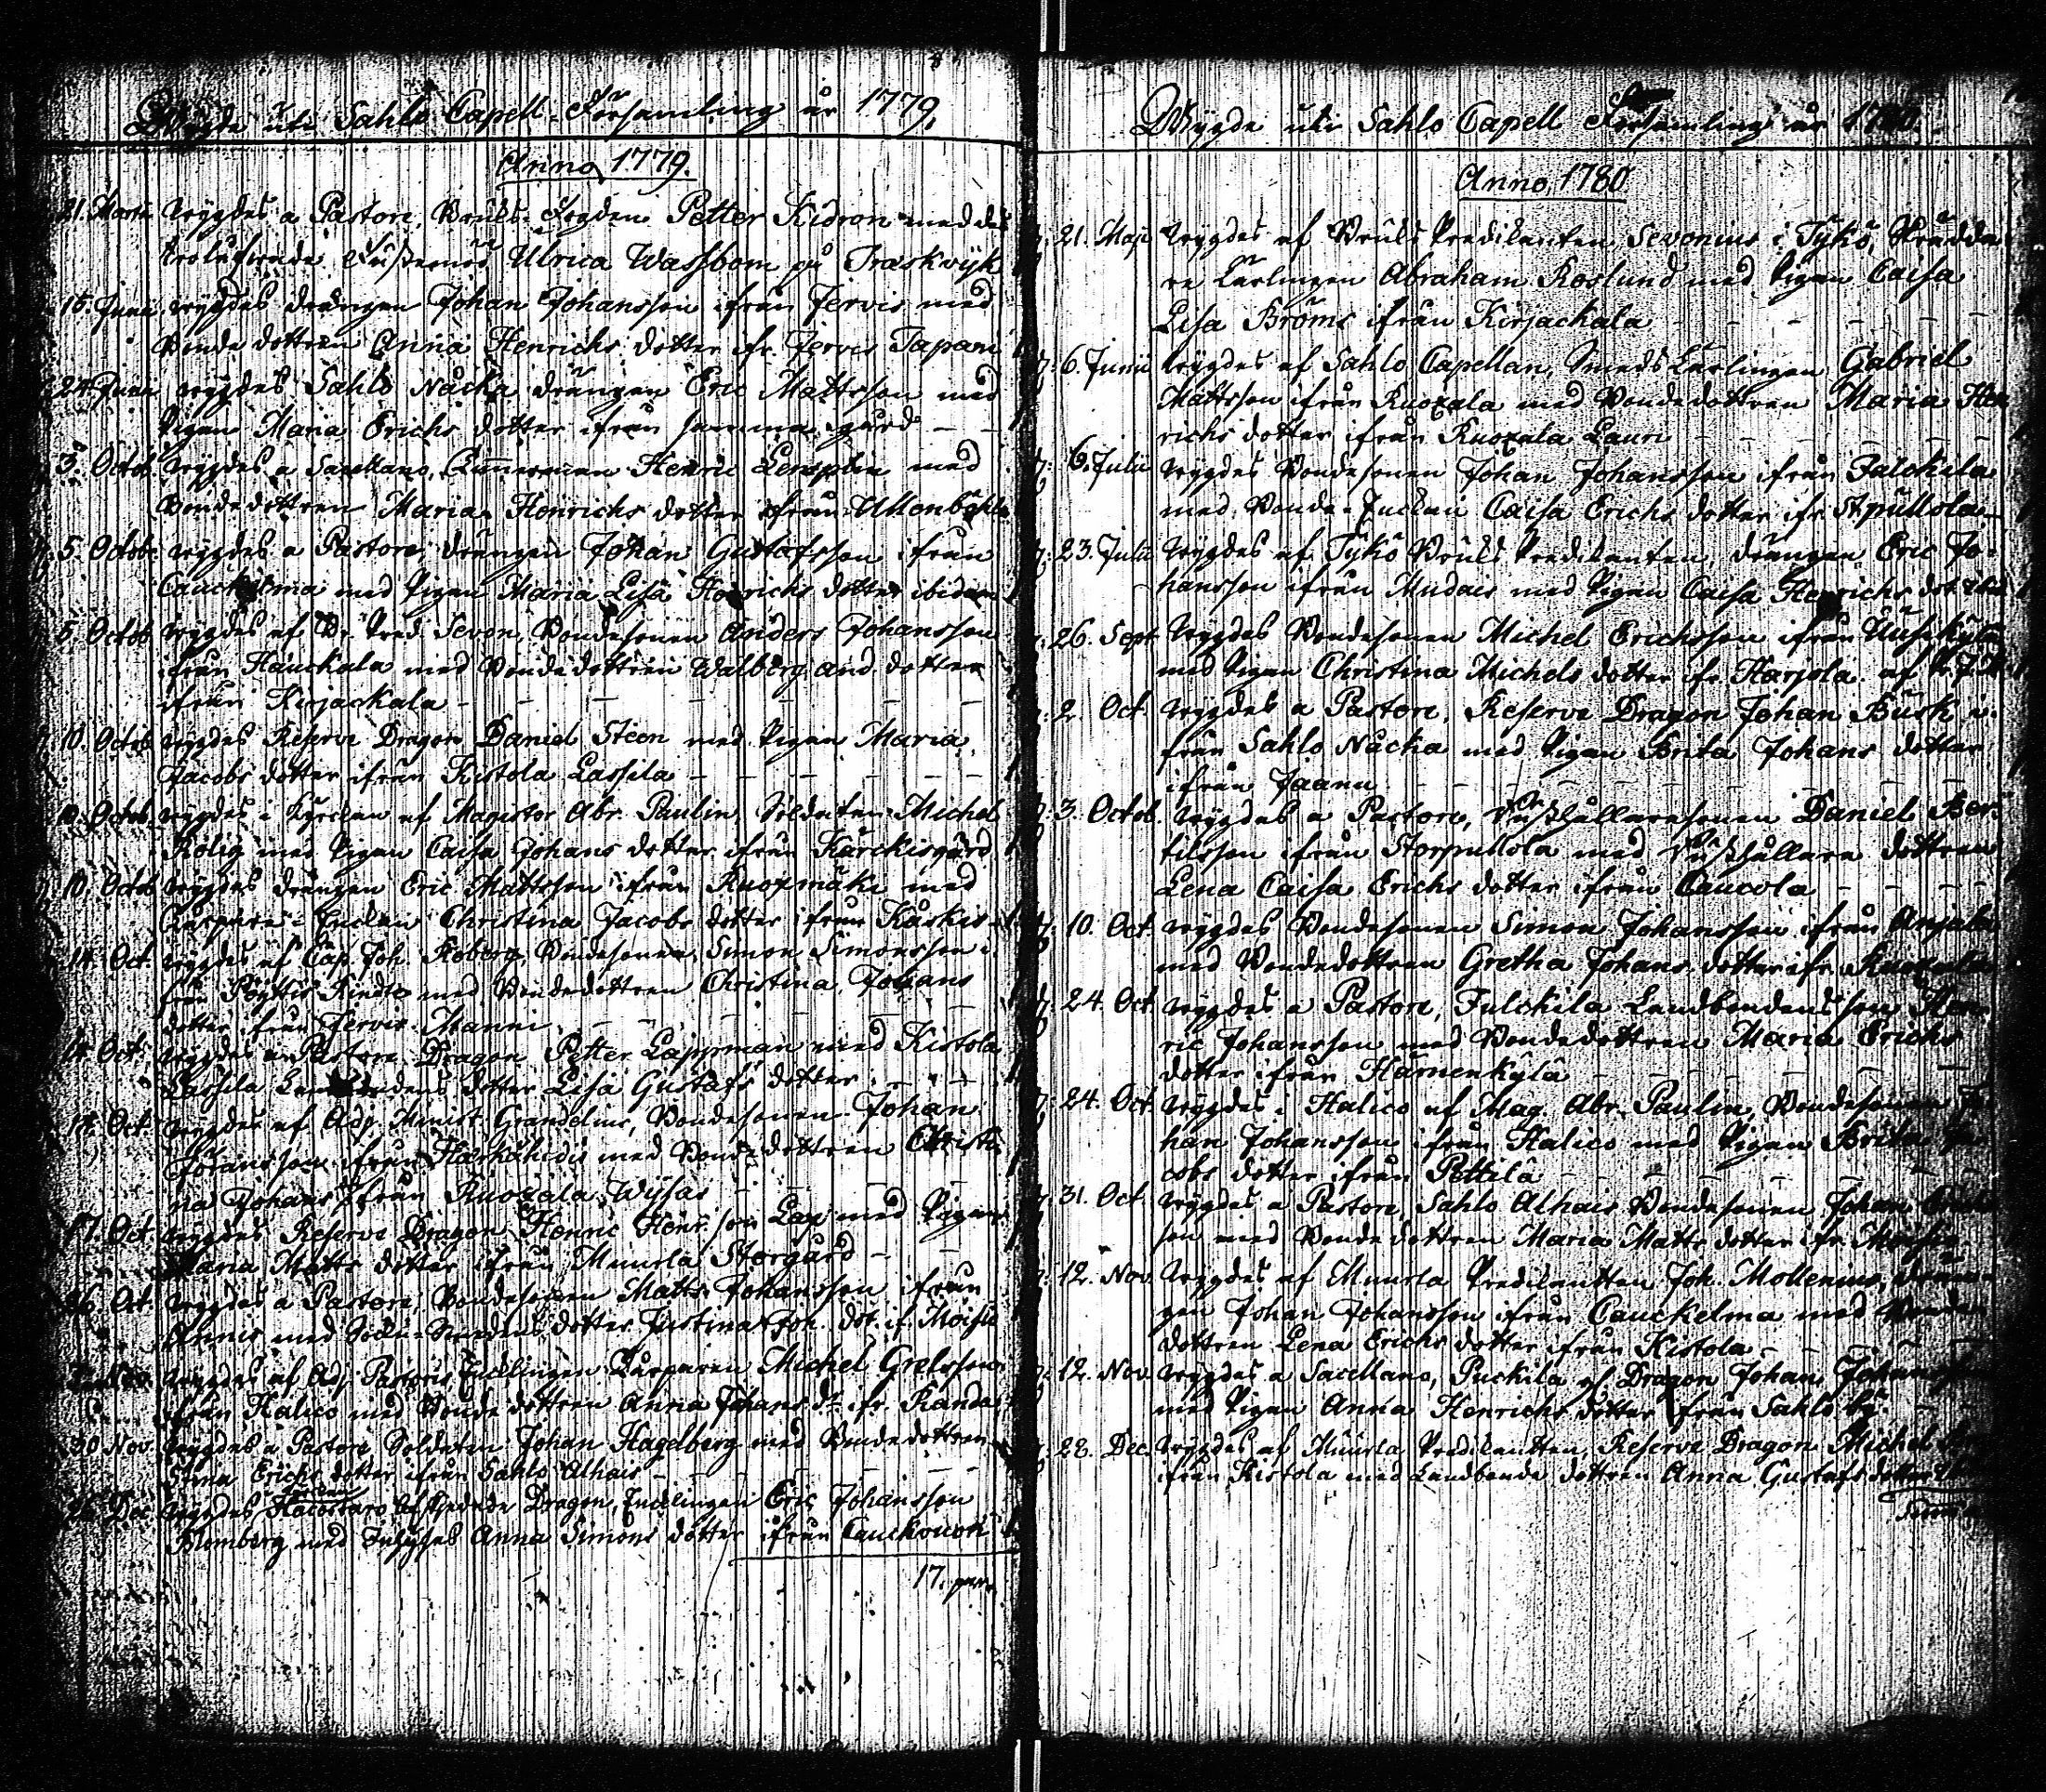 Wygde uti Sahlo Capell-Församling år 1779.
Anno, 1779.
21. Martii wygdes a Pastore, Bruks-Fogden Petter Kidron med des
trolofwade Ulrica Wassbom på Træskwijk
15. Junii wygdes drängen Johan Johansson ifrån Jervis med
Bonde dottren Anna Henrichs dotter ifr. Jervis Tapani
24. Junii wygdes Sahlo Nåcka drängen Eric Mattsson med
Pigan Maria Erichs dotter ifrån samma gård
3. Octob. wygdes a Sacellano, Henric med
Bonde dottren Maria Henrichs dotter ifrån
5. Octob. wygdes a Pastore, drängen Johan Gustafsson ifrån
med Pigan Maria Lisa Henrichs dotter ibidem
5. Octob. wygdes af Br. Pred. Sevon, Bondesonen Anders Johansson
ifrån Hauckala med Bonde dottren Walborg And. dotter
ifrån Kirjackala
10. Octob. wygdes Reserve Dragon Daniel Steen med Pigan Maria
Jacobs dotter ifrån Kistola Lassila
10. Octob. wygdes i Kyrckan af Magister Abr. Paulin, Soldaten Michel
Rolig med Pigan Caisa Johans dotter ifrån Kärckisgård
10. Octob. wygdes drängen Eric Mattsson ifrån Ruoxmäki med
Enckan Christina Jacobs dotter ifrån Kåskis
14. Oct. wygdes af Cap. Joh. Roberg, Bondesonen Simon Simonsson i
från Pöyttis med Bondedottren Christina Johans
dotter ifrån Jervis Manni
14. Oct. wygdes a Pastore Dragon Petter Lappman med Kistola
Lassila dotter Lisa Gustafs dotter
wygdes af Adj. Minist. Grandelius, Bondesonen Johan
Joransson ifrån med Bonde dottren Christi
na Johans ifrån Ruoxala Wysas
17. Oct. wygdes Reserve Dragon Henric Henr. son Lax med Pigan
Maria Matts dotter ifrån Muurla Storgård
26. Oct. wygdes a Pastore, Bondesonen Matts Johansson ifrån
med dotter Justina Joh. dot. if. Moisio
Nov. wygdes af Adj. Pastoris, Encklingen Michel Grelsson
ifrån Halico med Bonde dottren Anna Johans dr. ifr. Randa
30 Nov. wygdes a Pastore Soldaten Johan Hagelberg med Bonde dottren
Erichs dotter ifrån Sahlo Alhais
26. Dec. wygdes Dragon, Encklingen Eric Johansson
Blomberg med Anna Simons dotter ifrån
17. par.
Wygde uti Sahlo Capell Församling år 1780.
Anno, 1780
21. Maji wygdes af Bruks Predikanten Sevonius i Tykö, Skrädda
re Lärlingen Abraham Roslund med Pigan Caisa
Lisa Broms ifrån Kirjackala
6. Junii wygdes af Sahlo Capellan, Smeds Lärlingen Gabriel
Mattsson ifrån Ruoxala med Bondedottren Maria Hen
richs dotter ifrån Ruoxala Lauri
6. Julii wygdes Bondesonen Johan Johansson ifrån Fulckila
med Bonde-Enckan Caisa Erichs dotter ifr. Stpullola
23. Julii wygdes af Tykö Bruks Predikanten, drängen Eric Jo-
hansson ifrån Mudais med Pigan Caisa Henrichs dot. ibid
26. Sept. wygdes Bondesonen Michel Erichsson ifrån Uusikylä
med Pigan Christina Michels dotter ifr. Harjola
2. Oct. wygdes a Pastore, Reserve Dragon Johan Busk i-
från Sahlo Nåcka med Pigan Brita Johans dotter
ifrån Jaanu
3. Octob. wygdes a Pastore, Rusthållaresonen Daniel Ber-
tilsson ifrån Storpullola med Rusthållare dottren
Lena Caisa Erichs dotter ifrån Caucola
10. Oct. wygdes Bondesonen Simon Johansson ifrån Anjala
med Bondedottren Gretha Johans dotter ifr. Ruoxala
24. Oct. wygdes a Pastore, Fulckila Landbondens son Hen
ric Johansson med Bondedottren Maria Erichs
dotter ifrån Hämenkylä
24. Oct. wygdes i Halico af Mag. Abr. Paulin, Bondesonen Jo
han Johansson ifrån Halico med Pigan Brita Ja
cobs dotter ifrån Pettilä
31. Oct. wygdes a Pastore, Sahlo Alhais Bondesonen Johan Erichs
son med Bonde dottren Maria Matts dotter ifr. Moisio
12. Nov. wygdes af Muurla Predikanten Joh. Mollenius, drän-
gen Johan Johansson ifrån Cauckelma med Bonde
dottren Lena Erichs dotter ifrån Kistola
12. Nov. wygdes a Sacellano, Puckila af Dragon Johan Johansson
med Pigan Anna Henrichs dotter ifrån Sahlo by
28. Dec. wygdes af Muurla Predikanten, Reserve Dragon Michel
ifrån Kistola med Landbonde dottren Anna Gustafs dotter